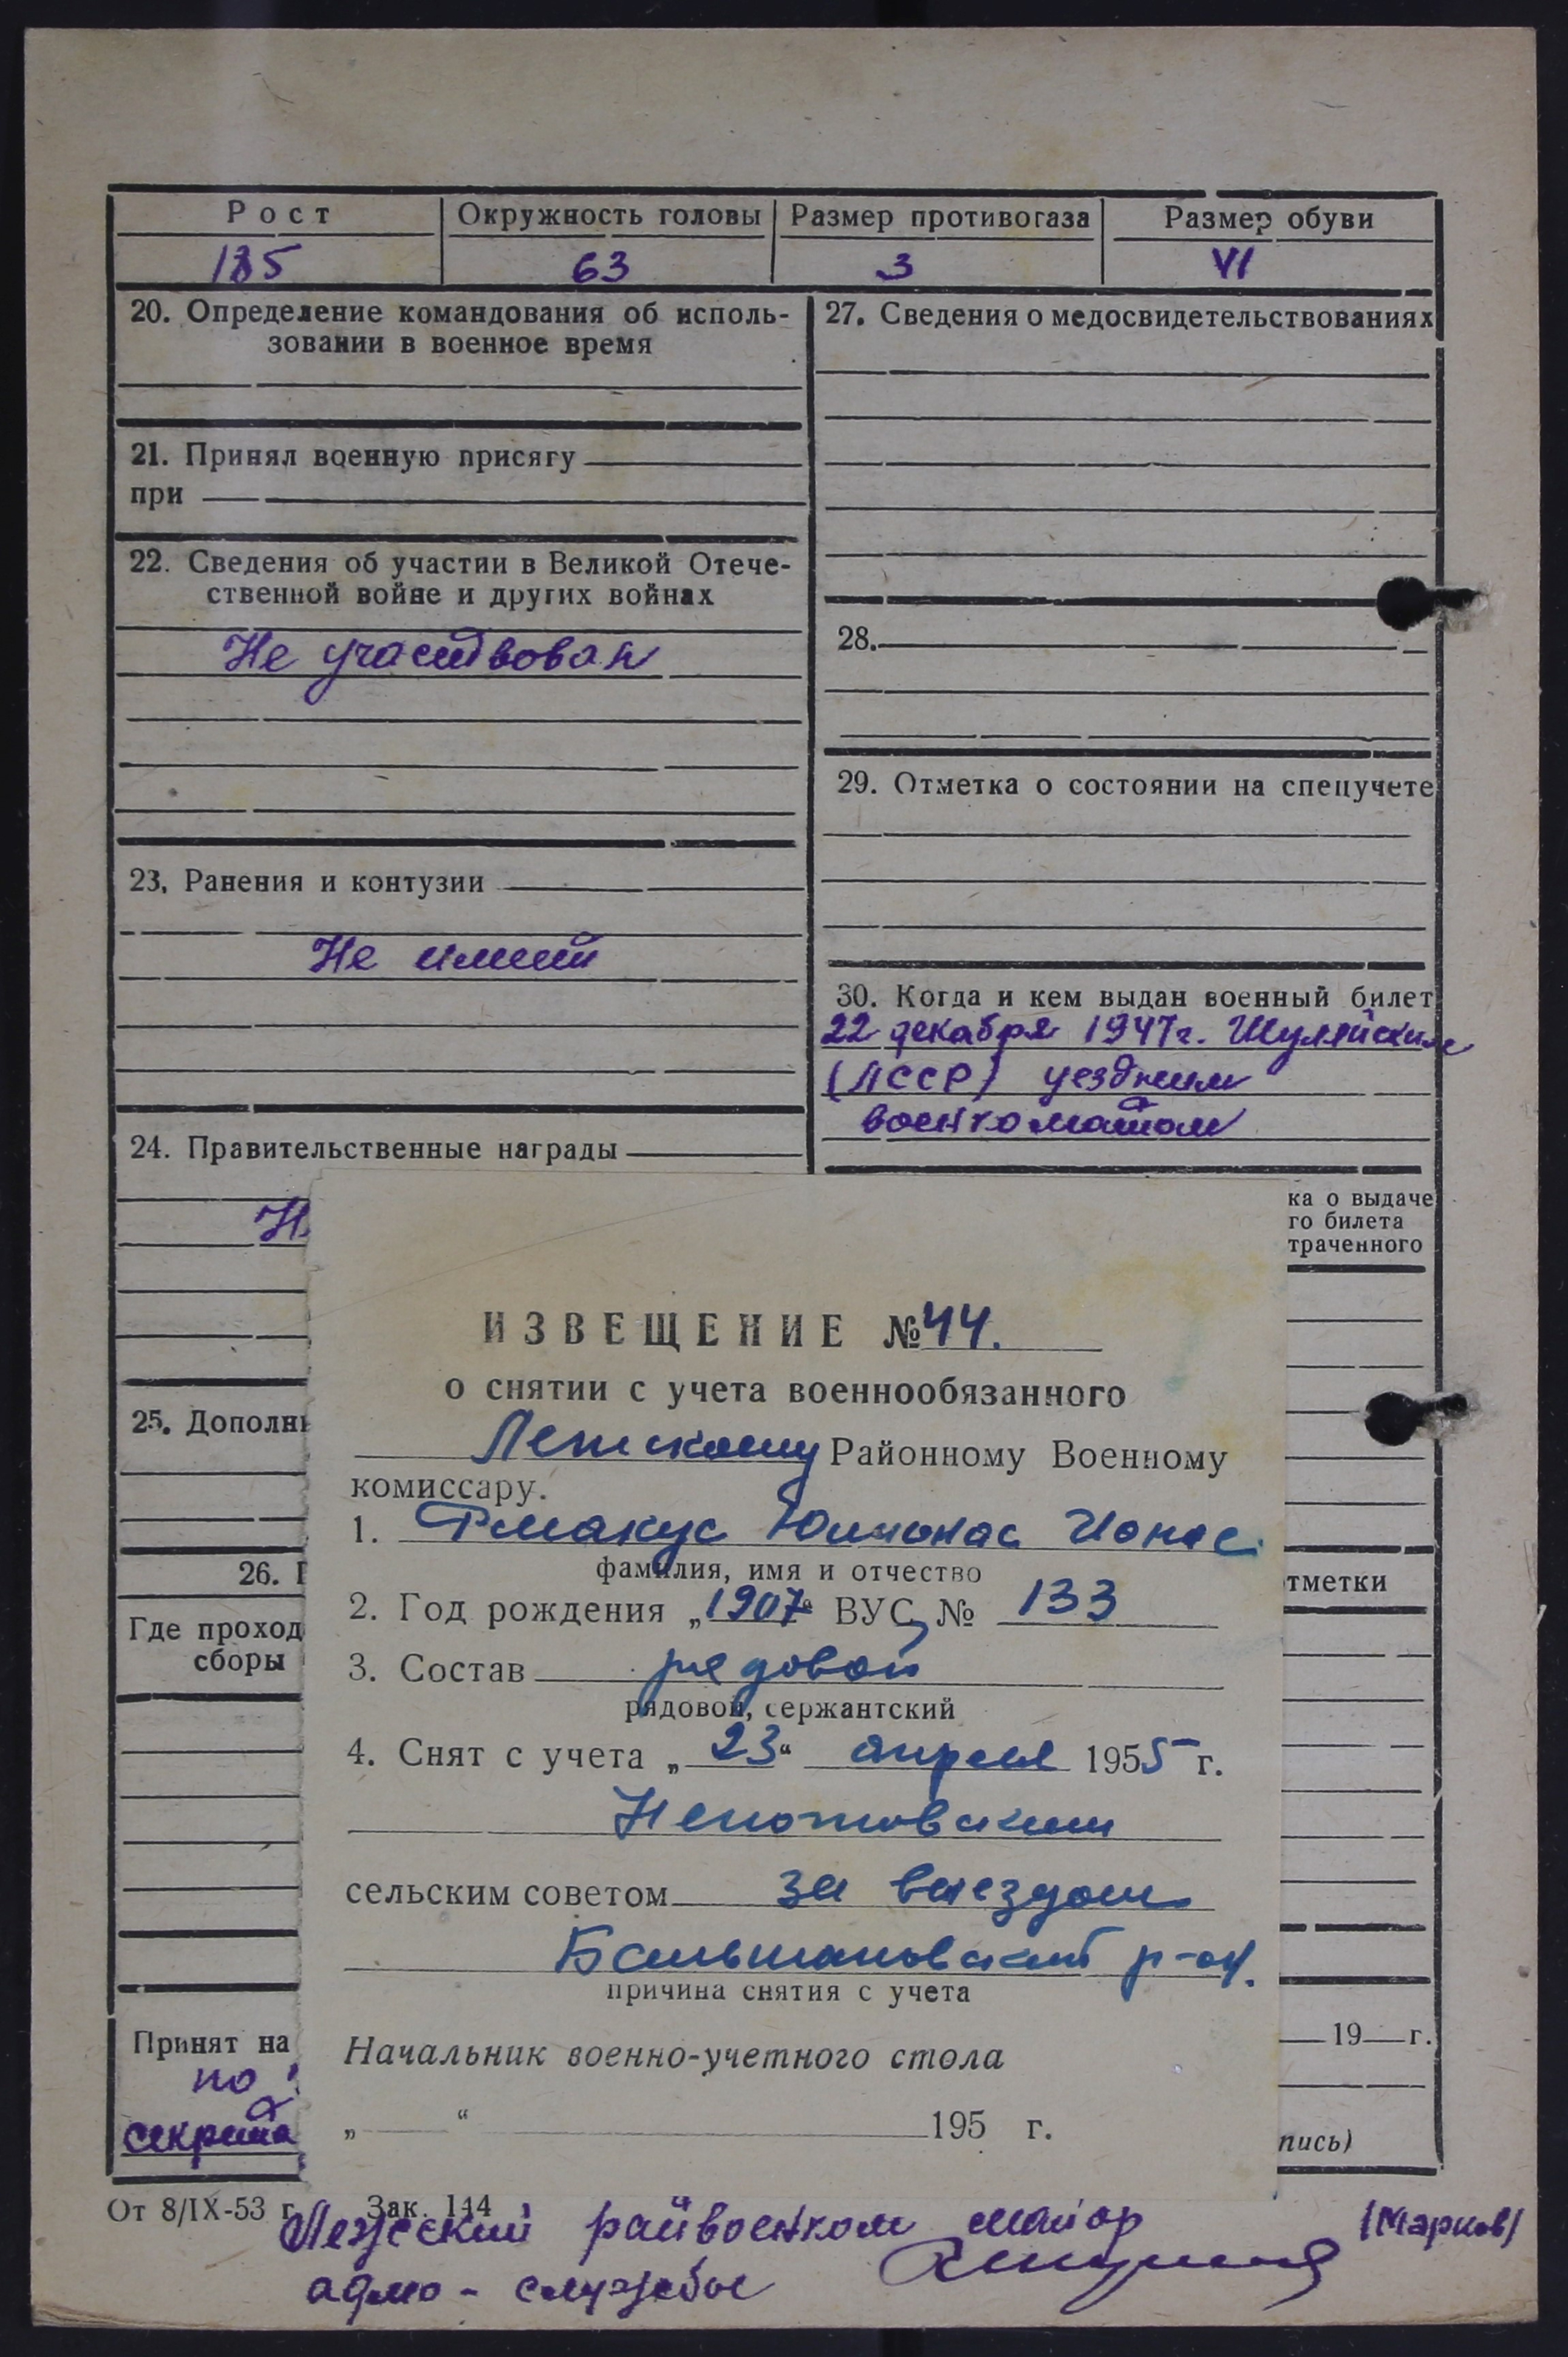 Рост
Окружность головы
Размер противогаза
Размер обуви
185
63
3
VI
20. Определение командования об исполь-
зовании в военное время
21. Принял военную присягу
при
22. Сведения об участии в Великой Отече-
ственной войне и других войнах
Не участвовал
23. Ранения и контузии
Не имеет
24. Правительственные награды
Н
25. Дополн
26.
Где проход
сборы
Принят на
по
секрета
27. Сведения о медосвидетельствованиях
28.
29. Отметка о состоянии на спецучете
30. Когда и кем выдан военный билет
22 декабря 1947г. Шуляйским
(ЛССР) уездным
военкоматом
ка о выдаче
го билета
траченного
тметки
19 г.
пись)
ИЗВЕЩЕНИЕ № 44.
о снятии с учета военнообязанного
Районному Военному
комиссару.
1. Юлионас Ионас
фамилия, имя и отчество
2. Год рождения „1907“ ВУС № 133
3. Состав рядовой
рядовой, сержантский
4. Снят с учета „23“ апреля 1955 г.
сельским советом за выездом
р-он.
причина снятия с учета
Начальник военно-учетного стола
„ “ 195 г.
От 8/IX-53 г. Зак. 144
райвоенком майор (Марков)
адмо - службы